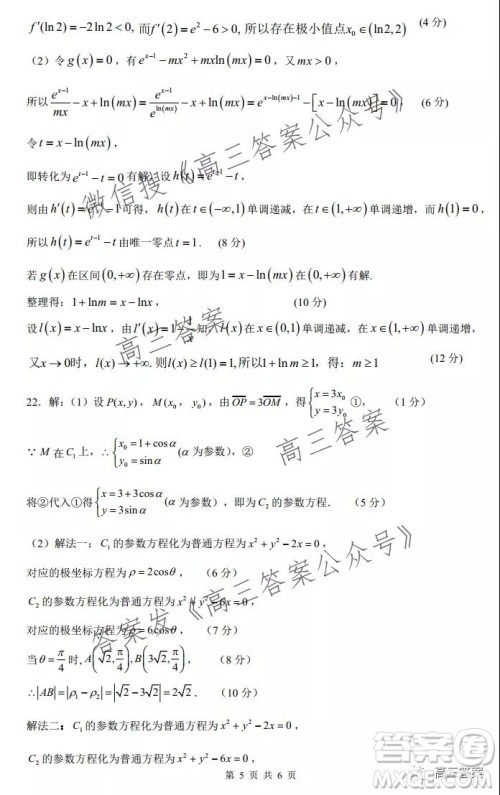 f′(ln2)=−2ln2<0, 而f′(2)=e²−6>0, 所以存在极小值点x₀∈(ln2,2) (4 分)
（2）令g(x)=0，有e^(x−1)−mx²+mxln(mx)=0，又mx>0，
所以e^(x−1)/mx−x+ln(mx)=e^(x−1)/e^(ln(mx))−x+ln(mx)=e^(x−ln(mx)−1)−[x−ln(mx)]=0， (6 分)
令t=x−ln(mx)，
即转化为e^(t−1)−t=0有解，设h(t)=e^(t−1)−t，
则由h′(t)=e^(t−1)−1可得，h(t)在t∈(−∞,1)单调递减，在t∈(1,+∞)单调递增，而h(1)=0，
所以h(t)=e^(t−1)−t由唯一零点t=1． (8 分)
若g(x)在区间(0,+∞)存在零点，即为1=x−ln(mx)在(0,+∞)有解．
整理得：1+lnm=x−lnx， (10 分)
设l(x)=x−lnx，由l′(x)=1−1/x知l(x)在x∈(0,1)单调递减，在x∈(1,+∞)单调递增，
又x→0时，l(x)→+∞. 则l(x)≥l(1)=1,所以1+lnm≥1，得：m≥1 (12 分)
22．解：（1）设P(x,y)，M(x₀, y₀)，由OP=3OM，得{x=3x₀ y=3y₀ ①， (1 分)
∵ M在C₁上，∴{x₀=1+cosα y₀=sinα (α为参数)，②
将②代入①得{x=3+3cosα y=3sinα (α为参数)，即为C₂的参数方程． (5 分)
（2）解法一：C₁的参数方程化为普通方程为x²+y²−2x=0，
对应的极坐标方程为ρ=2cosθ， (6 分)
C₂的参数方程化为普通方程为x²+y²−6x=0，
对应的极坐标方程为ρ=6cosθ， (7 分)
当θ=π/4时, A(√2,π/4),B(3√2,π/4)， (8 分)
∴|AB|=|ρ₁−ρ₂|=|√2−3√2|=2√2． (10 分)
解法二：C₁的参数方程化为普通方程为x²+y²−2x=0，
C₂的参数方程化为普通方程为x²+y²−6x=0，
第 5 页 共 6 页
微信搜《高三答案公众号》
高三答案
高三答案
答案发《高三答案公众号》
高三答案
MXQE.COM